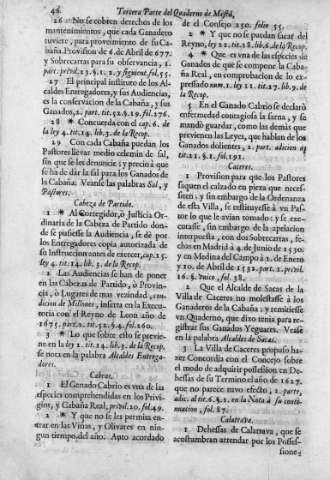 48 Tercera Parte del Quaderno de Mesta,
26 No se cobren derechos de los
mantenimientos, que cada Ganadero
tuviere, para proveimiento de su Ca-
baña. Provision de 4. de Abril de 677.
y Sobrecartas para su observancia, 1.
part. privil. 23. §. 1. 2. y siguient. fol. 55.
27 El principal instituto de los Al-
caldes Entregadores, y sus Audiencias,
es la conservacion de la Cabaña, y sus
Ganados, 2. part. tit. 52. §. 19. fol. 176.
28 * Concuerda con el cap. 6. de
la ley 4. tit. 14. lib. 3. de la Recop.
29 Con cada Cabaña puedan los
Pastores llevar medio calemin de sal,
sin que se les denuncie; y precio à que
se ha de dár la sal para los Ganados de
la Cabaña. Veanse las palabras Sal, y
Pastores.
Cabeza de Partido.
1 * Al Corregidor, ò Justicia Or-
dinaria de la Cabeza de Partido don-
de se pusiesse la Audiencia, se dè por
los Entregadores copia autorizada de
su Instruccion antes de exercer, cap. 15.
ley 4. tit. 14. lib. 3. de la Recop.
2 Las Audiencias se han de poner
en las Cabezas de Partido, ò Provin-
cia, ò Lugares de mas vecindad, con-
dicion de Millones, inserta en la Execu-
toria con el Reyno de Leon año de
1675. part. 2. tit. 52. §. 4. fol. 160.
3 * Lo que sobre esto se previe-
ne en la ley 2. tit. 14. lib. 3. de la Recop.
se nota en la palabra Alcaldes Entrega-
dores.
Cabras.
1 El Ganado Cabrio es una de las
especies comprehendidas en los Privi-
legios, y Cabaña Real, privil. 20. fol. 49.
2 * Y que no se les permita en-
trar en las Viñas, y Olivares en nin-
gun tiempo del año. Auto acordado
de el Consejo 250. folio 55.
3 * Y que no se puedan sacar del
Reyno, ley 2. tit. 18. lib. 6. de la Recop.
4 * Que es una de las especies de
Ganados de que se compone la Caba-
ña Real, en comprobacion de lo ex-
pressado num. 1. ley 11. tit. 27. lib. 9. de la
Recop.
5 En el Ganado Cabrio se declarò
enfermedad contagiosa la sarna, y se
mandò guardar, como las demàs que
previenen las Leyes, que hablan de los
Ganados dolientes, 2. part. adicion al
tit. 21. §. 1. fol. 191.
Caceres.
1 Provision para que los Pastores
saquen el calzado en pieza que neces-
siten, y sin embargo de la Ordenanza
de esta Villa, se restituyesse à un Pas-
tor lo que le avian tomado; y se exe-
cutasse, sin embargo de la apelacion
interpuesta, con dos Sobrecartas, fe-
chos en Madrid à 4. de Junio de 1530
y en Medina del Campo à 2. de Enero
y 20. de Abril de 1532. part. 2. privil.
16. §. unico, fol. 38.
2 Que el Alcalde de Sacas de la
Villa de Caceres no molestasse à los
Ganaderos de la Cabaña, y remitiesse
un Quaderno, que dixo tenia para re-
gistrar sus Ganados Yeguares. Vease
en la palabra Alcaldes de Sacas.
3 La Villa de Caceres propuso ha-
zer Concordia con el Concejo sobre
el modo de adquirir possession en De-
hessas de su Termino el año de 1627.
que no parece tuvo efecto, 2. parte,
adic. al tit. 6. §. 1. en la Nota à su conti-
nuacion, fol. 87.
Calatrava.
1 Dehessas de Calatrava, que se
acostumbran atrendar por los Posses-
siones